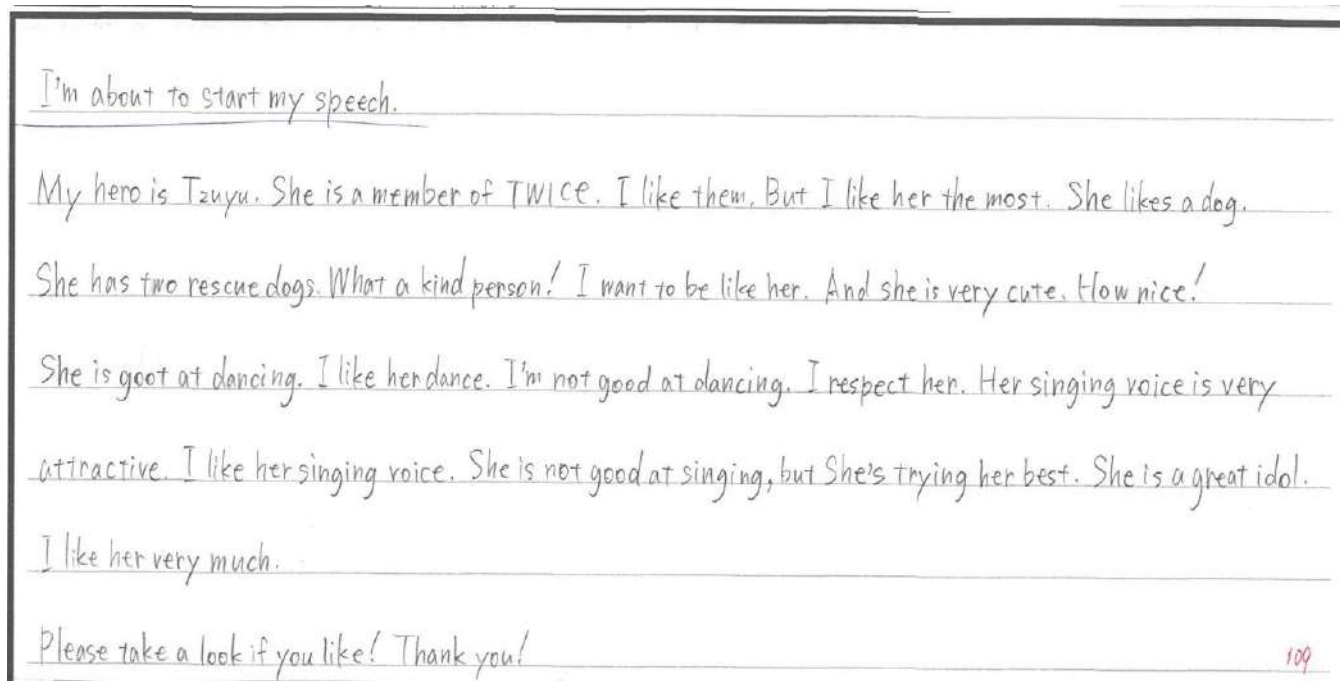 I'm about to start my speech.
My hero is Tzuyu. She is a member of TWICE. I like them. But I like her the most. She likes a dog.
She has two rescue dogs. What a kind person! I want to be like her. And she is very cute. How nice!
She is goot at dancing. I like her dance. I'm not good at dancing. I respect her. Her singing voice is very
attractive. I like her singing voice. She is not good at singing, but She's trying her best. She is a great idol.
I like her very much.
Please take a look if you like! Thank you!
109